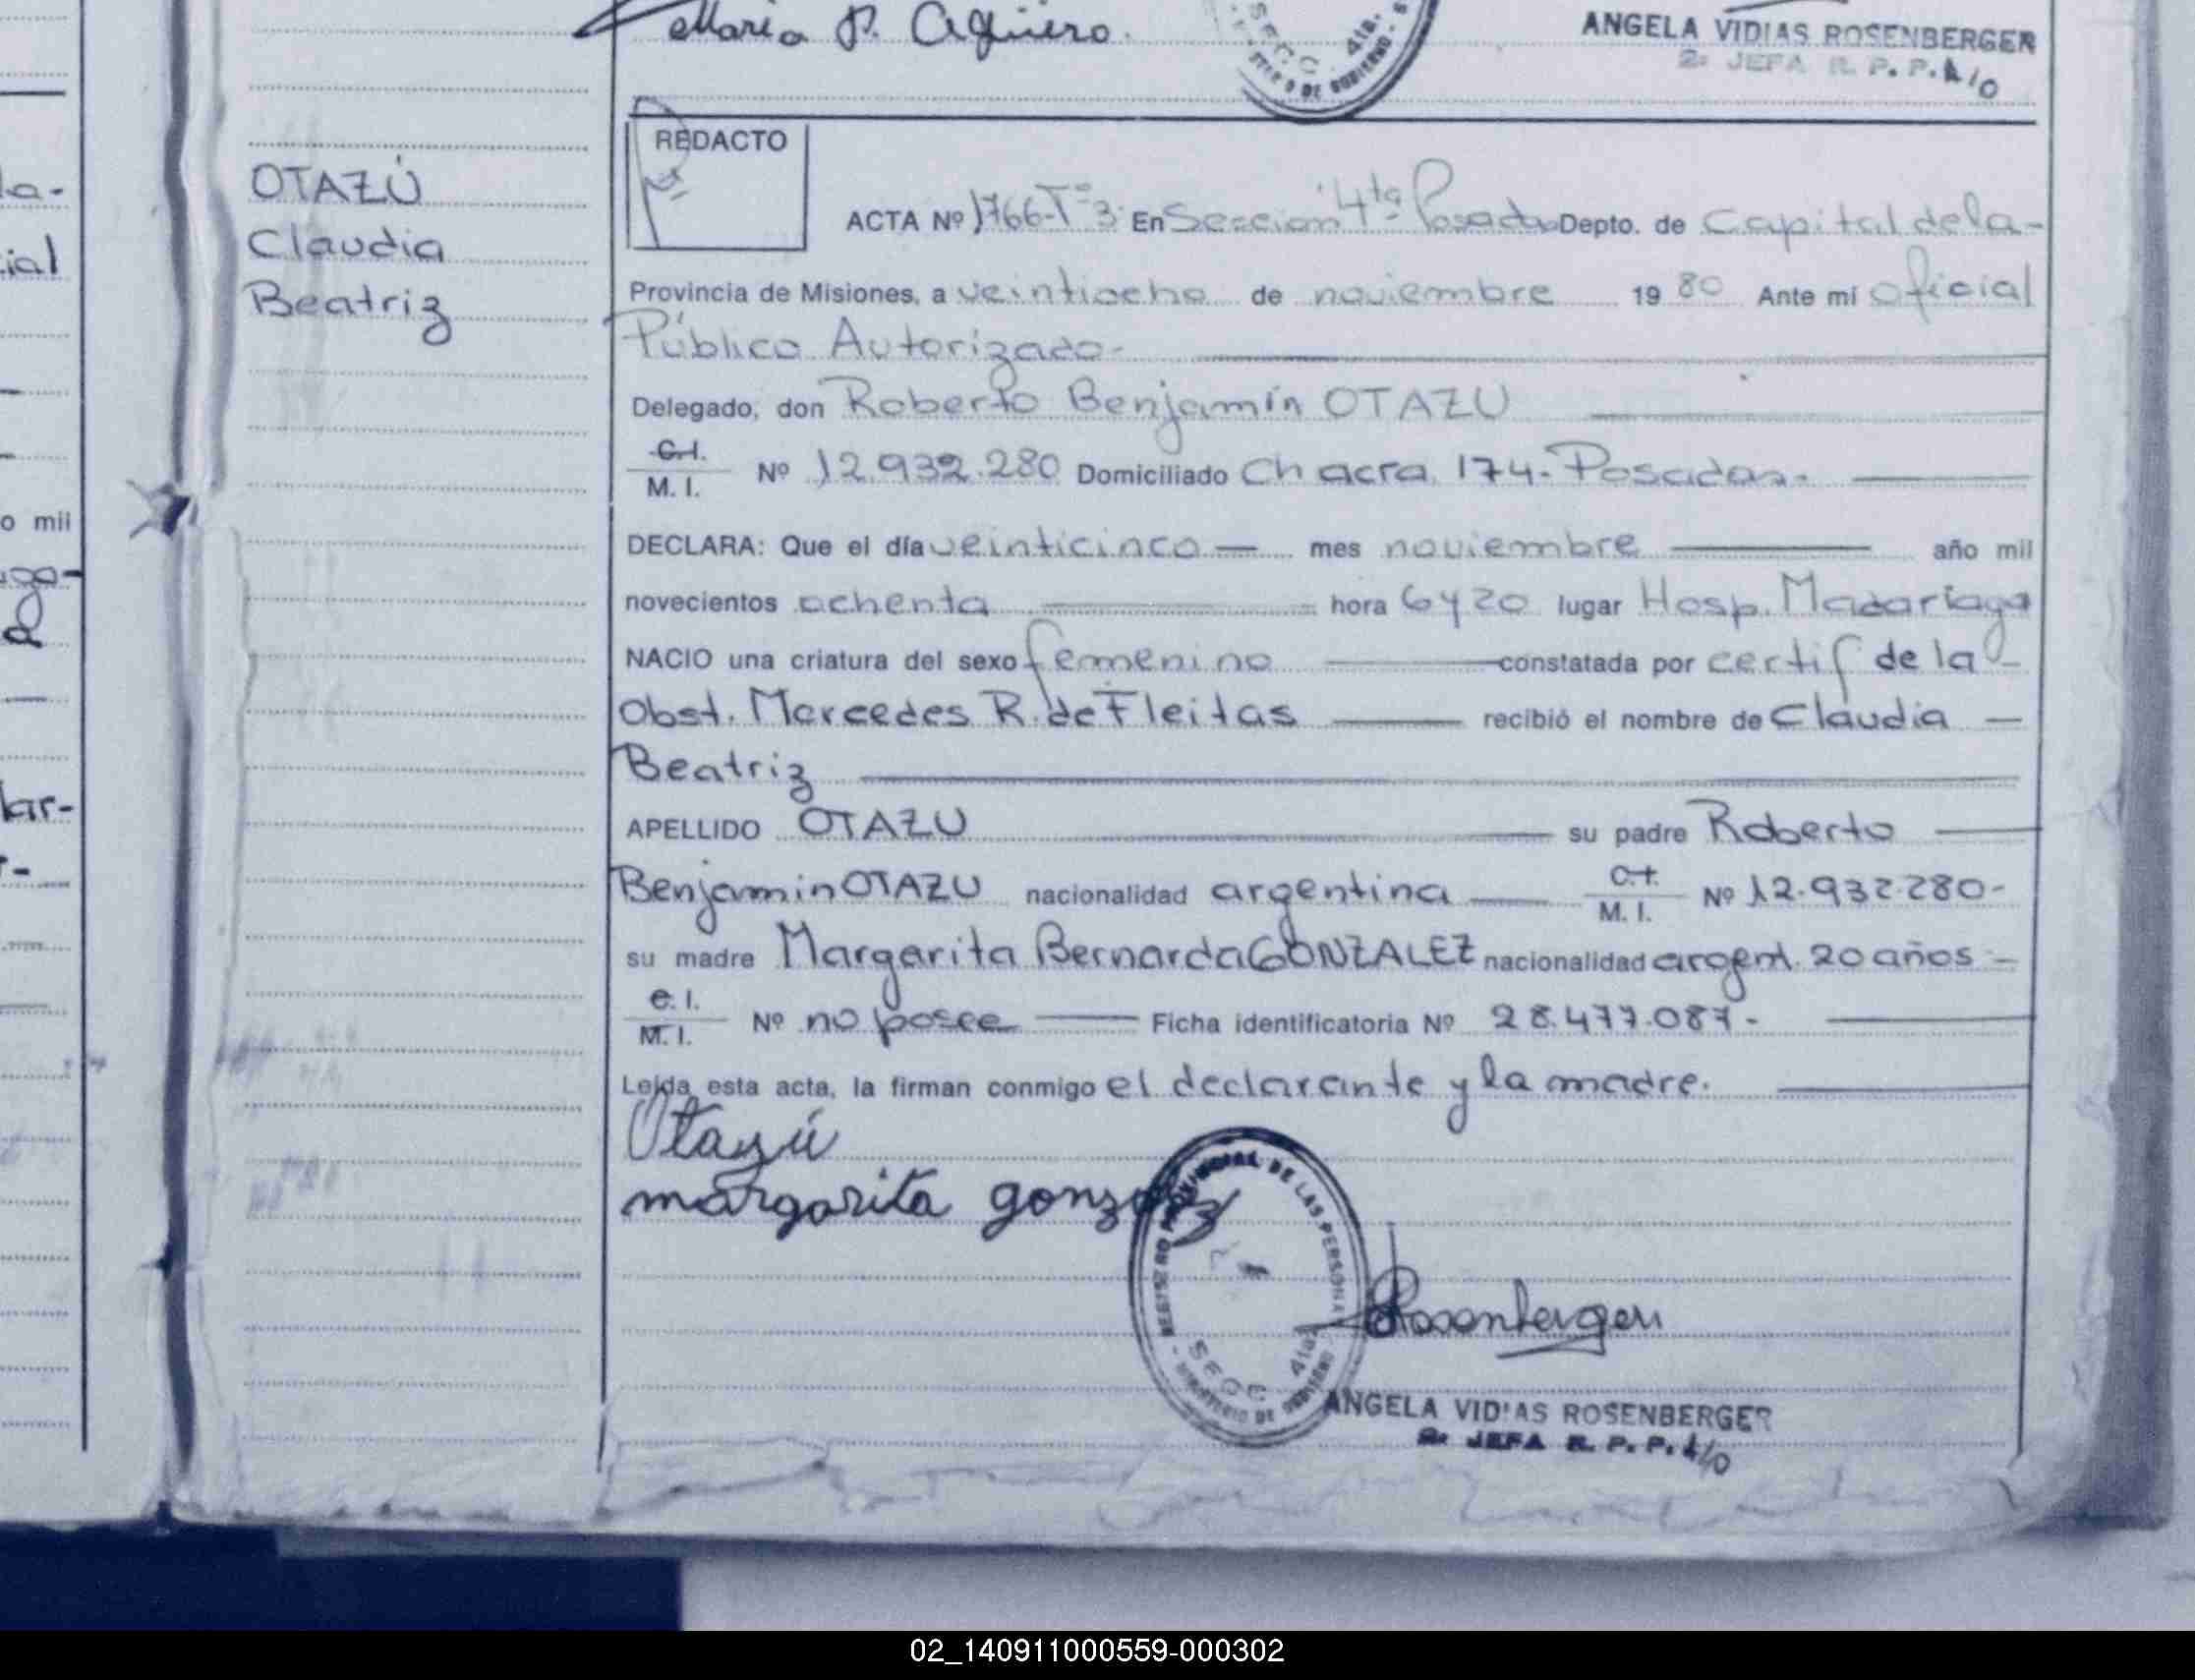 María P. Agüero.
SECC. 4ta.
ANGELA VIDIAS ROSENBERGER
2a JEFA R. P. P. A/O
la-
ial
o mil
lar-
OTAZÚ
Claudia
Beatriz
REDACTO
ACTA Nº 1766-Tº3 En Seccion 4ta Posadas Depto. de Capital de la-
Provincia de Misiones, a veintiocho de noviembre 1980 Ante mi oficial
Público Autorizado-
Delegado, don Roberto Benjamín OTAZU
C.I.
M. I. Nº 12.932.280 Domiciliado Chacra 174-Posadas-
DECLARA: Que el día veinticinco — mes noviembre — año mil
novecientos ochenta — hora 6 y 20 lugar Hosp. Madariaga
NACIO una criatura del sexo femenino — constatada por certif de la-
Obst. Mercedes R. de Fleitas — recibió el nombre de Claudia —
Beatriz —
APELLIDO OTAZU — su padre Roberto —
Benjamin OTAZU nacionalidad argentina — C.I.
M. I. Nº 12.932.280-
su madre Margarita Bernarda GONZALEZ nacionalidad argent. 20 años -
C. I.
M. I. Nº no posee — Ficha identificatoria Nº 28.477.087- —
Leida esta acta, la firman conmigo el declarante y la madre. —
Otazú
margarita gonzalez
REGISTRO PROVINCIAL DE LAS PERSONAS
SECC. 4ta.
MINISTERIO DE GOBIERNO
Rosenberger
ANGELA VIDIAS ROSENBERGER
2a JEFA R. P. P. A/O
02_140911000559-000302